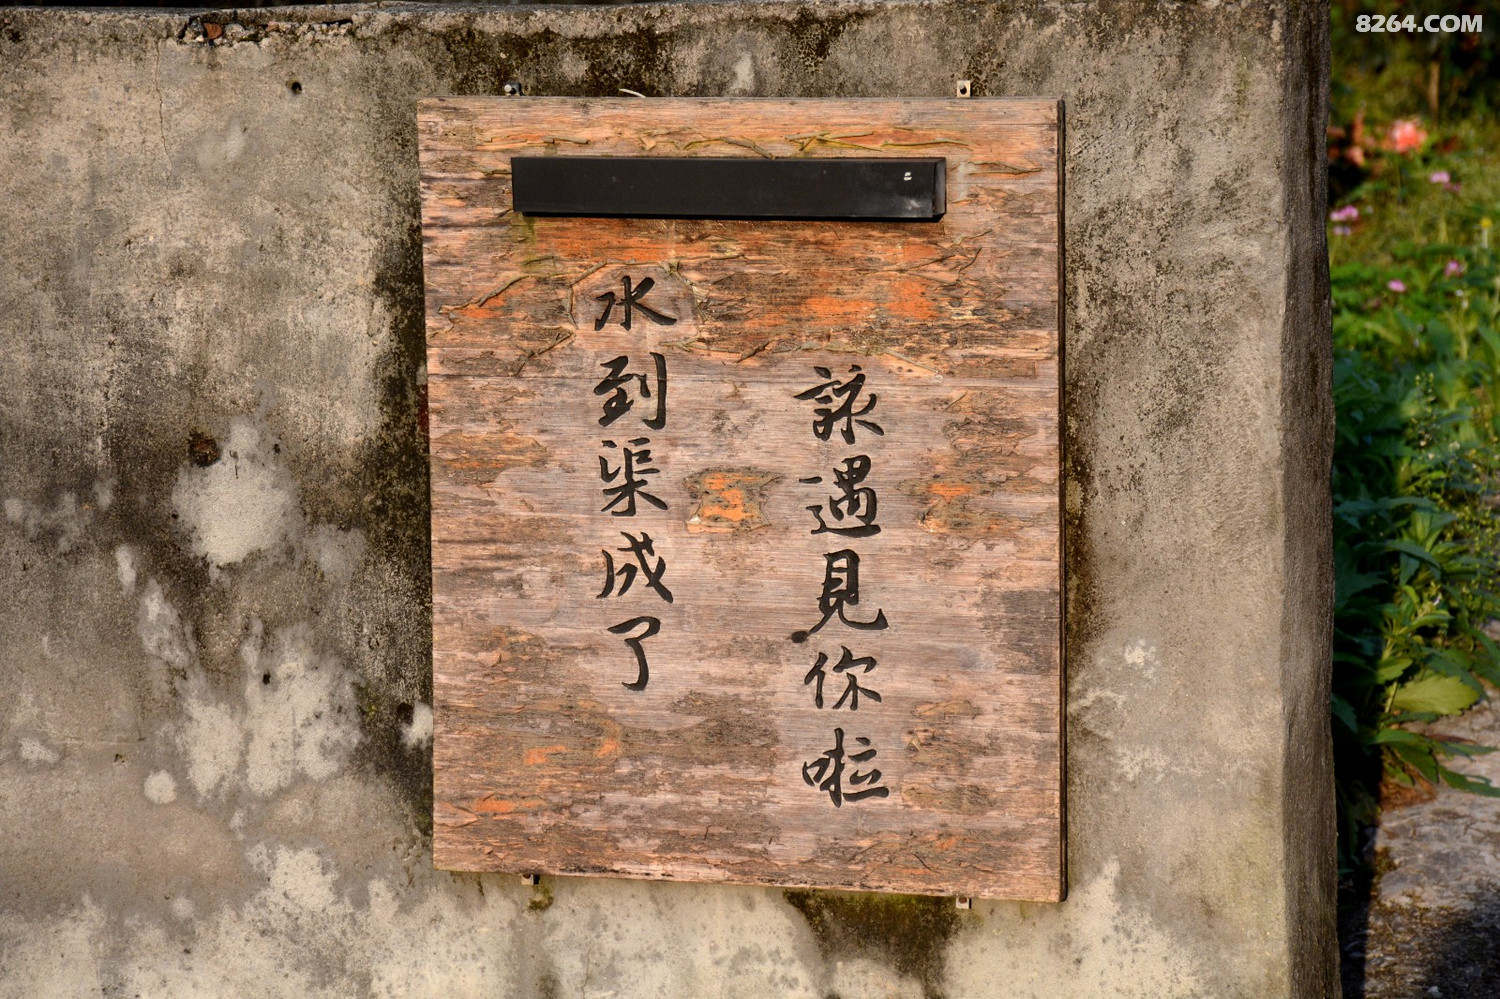 8264.COM
水到渠成了
該遇見你啦